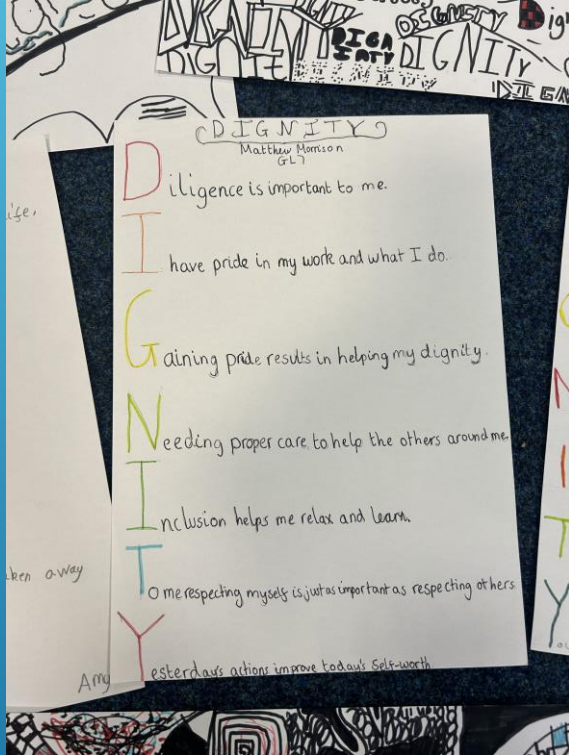 DIGNITY
DIGNITY
Dig
DIGNITY
DIGNITY
DIGNITY
DIGN
DIGNITY
Matthew Morrison
GL7
Diligence is important to me.
I have pride in my work and what I do.
Gaining pride results in helping my dignity.
Needing proper care to help the others around me.
Inclusion helps me relax and learn.
To me respecting myself is just as important as respecting others
Yesterday's actions improve today's Self-worth
life.
ken away
Amy
N
I
T
Y